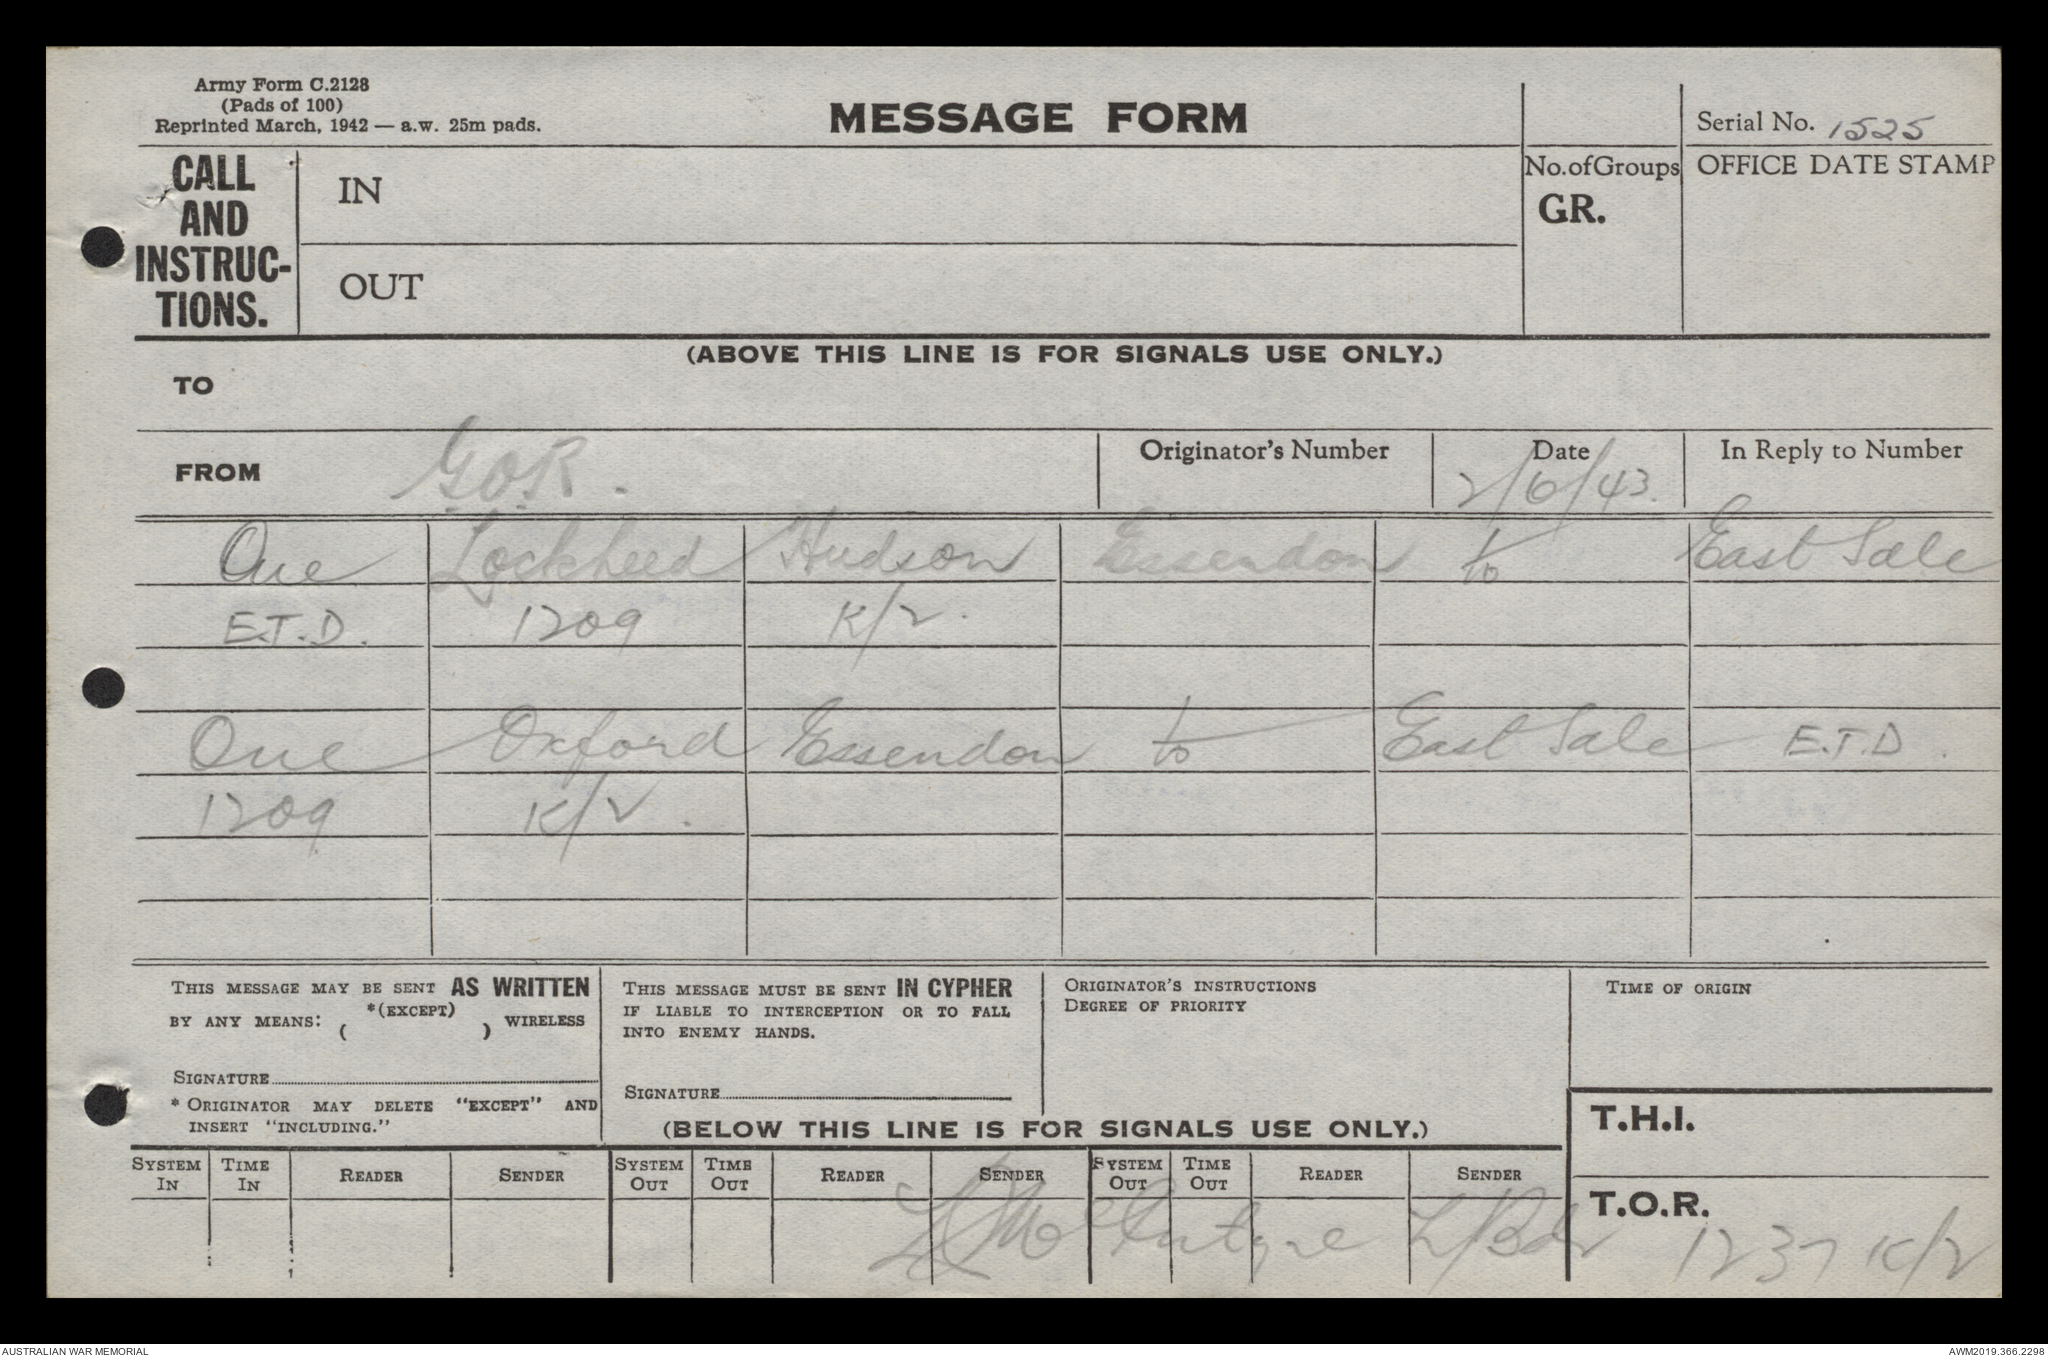 Army Form C.2128
(Pads of 100)
Reprinted March, 1942 — a.w. 25m pads.
MESSAGE FORM
Serial No. 1525
CALL AND INSTRUC-TIONS.
IN
OUT
No. of Groups
GR.
OFFICE DATE STAMP
(ABOVE THIS LINE IS FOR SIGNALS USE ONLY.)
TO
FROM G.O.R.
Originator's Number
Date 2/6/43.
In Reply to Number
One Lockheed Hudson Essendon to East Sale
E.T.D. 1209 K/2.
One Oxford Essendon to East Sale E.T.D.
1209 K/2.
THIS MESSAGE MAY BE SENT AS WRITTEN
BY ANY MEANS: *(EXCEPT) ( ) WIRELESS
SIGNATURE
* ORIGINATOR MAY DELETE "EXCEPT" AND
INSERT "INCLUDING."
THIS MESSAGE MUST BE SENT IN CYPHER
IF LIABLE TO INTERCEPTION OR TO FALL
INTO ENEMY HANDS.
SIGNATURE
ORIGINATOR'S INSTRUCTIONS
DEGREE OF PRIORITY
TIME OF ORIGIN
(BELOW THIS LINE IS FOR SIGNALS USE ONLY.)
T.H.I.
SYSTEM IN TIME IN READER SENDER SYSTEM OUT TIME OUT READER SENDER SYSTEM OUT TIME OUT READER SENDER
McIntyre L/Bdr
T.O.R. 1237 K/2
AUSTRALIAN WAR MEMORIAL
AWM2019.366.2298